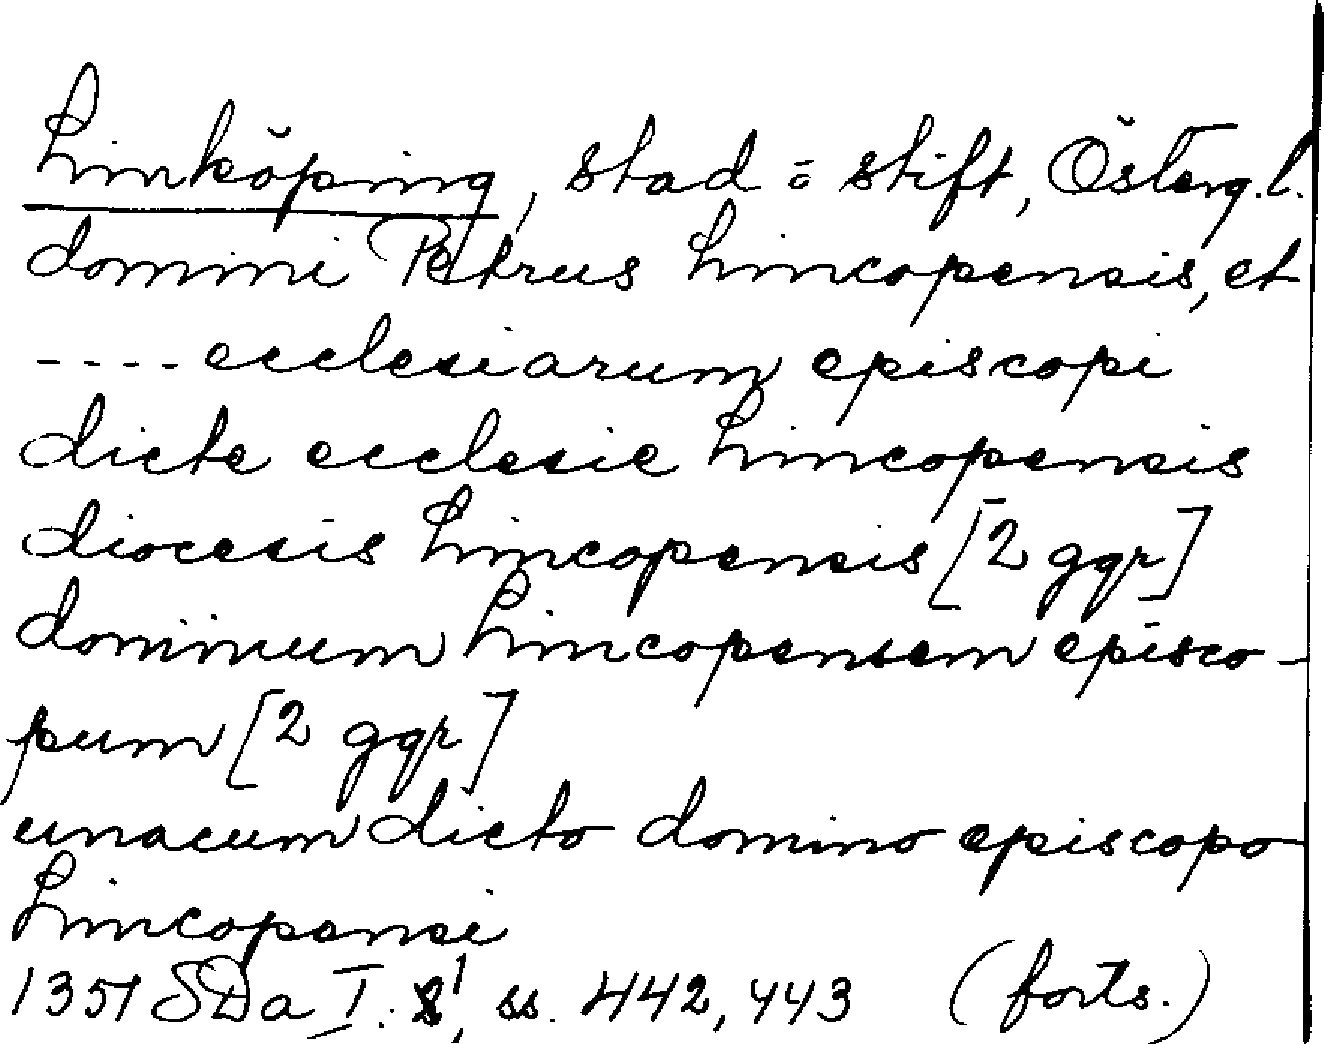 Linköping, stad o. stift, Österg.l.
domini Petrus Lincopensis, et
---- ecclesiarum episcopi
dicte ecclesie Lincopensis
diocesis Lincopensis [2 ggr]
dominum Lincopensem episco-
pum [2 ggr]
unacum dicto domino episcopo
Lincopensi
1351 SDa I: ss. 442, 443 (forts.)